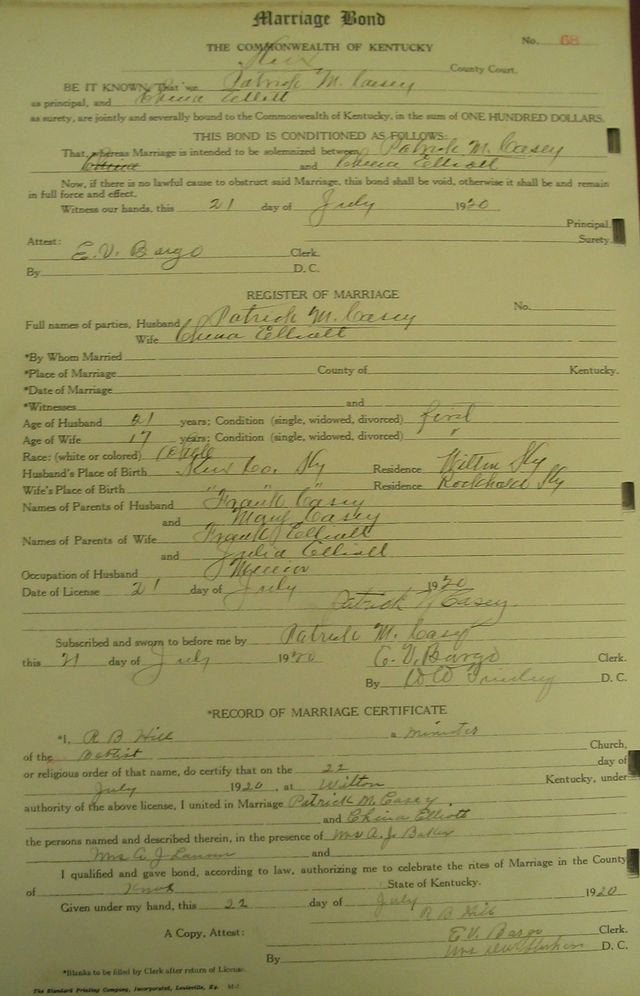 Marriage Bond
No. 68
THE COMMONWEALTH OF KENTUCKY
Knox County Court.
BE IT KNOWN, That we Patrick M. Casey
as principal, and China Elliott
as surety, are jointly and severally bound to the Commonwealth of Kentucky, in the sum of ONE HUNDRED DOLLARS.
THIS BOND IS CONDITIONED AS FOLLOWS:
That, whereas Marriage is intended to be solemnized between Patrick M. Casey
and China Elliott
Now, if there is no lawful cause to obstruct said Marriage, this bond shall be void, otherwise it shall be and remain
in full force and effect.
Witness our hands, this 21 day of July 1920
Principal.
Surety.
Attest:
E. V. Bargo Clerk.
By D. C.
REGISTER OF MARRIAGE
No.
Full names of parties, Husband Patrick M. Casey
Wife China Elliott
*By Whom Married
*Place of Marriage County of Kentucky.
*Date of Marriage
*Witnesses and
Age of Husband 21 years; Condition (single, widowed, divorced) first
Age of Wife 17 years; Condition (single, widowed, divorced) "
Race: (white or colored) White
Husband's Place of Birth Knox Co. Ky Residence Wilton Ky
Wife's Place of Birth " " " Residence Rockhold Ky
Names of Parents of Husband Frank Casey
and Mary Casey
Names of Parents of Wife Frank Elliott
and Julia Elliott
Occupation of Husband Miner
Date of License 21 day of July 1920
Patrick M Casey
Subscribed and sworn to before me by Patrick M. Casey
this 21 day of July 1920 E. V. Bargo Clerk.
By D. C.
*RECORD OF MARRIAGE CERTIFICATE
*I, R B Hill a minister
of the Baptist Church,
or religious order of that name, do certify that on the 22 day of
July 1920, at Wilton Kentucky, under
authority of the above license, I united in Marriage Patrick M. Casey,
and China Elliott
the persons named and described therein, in the presence of Mrs A. J. Baker
Mrs A J and
I qualified and gave bond, according to law, authorizing me to celebrate the rites of Marriage in the County
of Knox State of Kentucky.
Given under my hand, this 22 day of July 1920
R B Hill
A Copy, Attest: E V. Bargo Clerk.
By Mrs D. C.
*Blanks to be filled by Clerk after return of License.
The Standard Printing Company, Incorporated, Louisville, Ky.